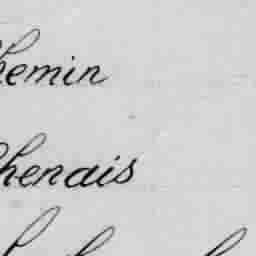 hemin
henais